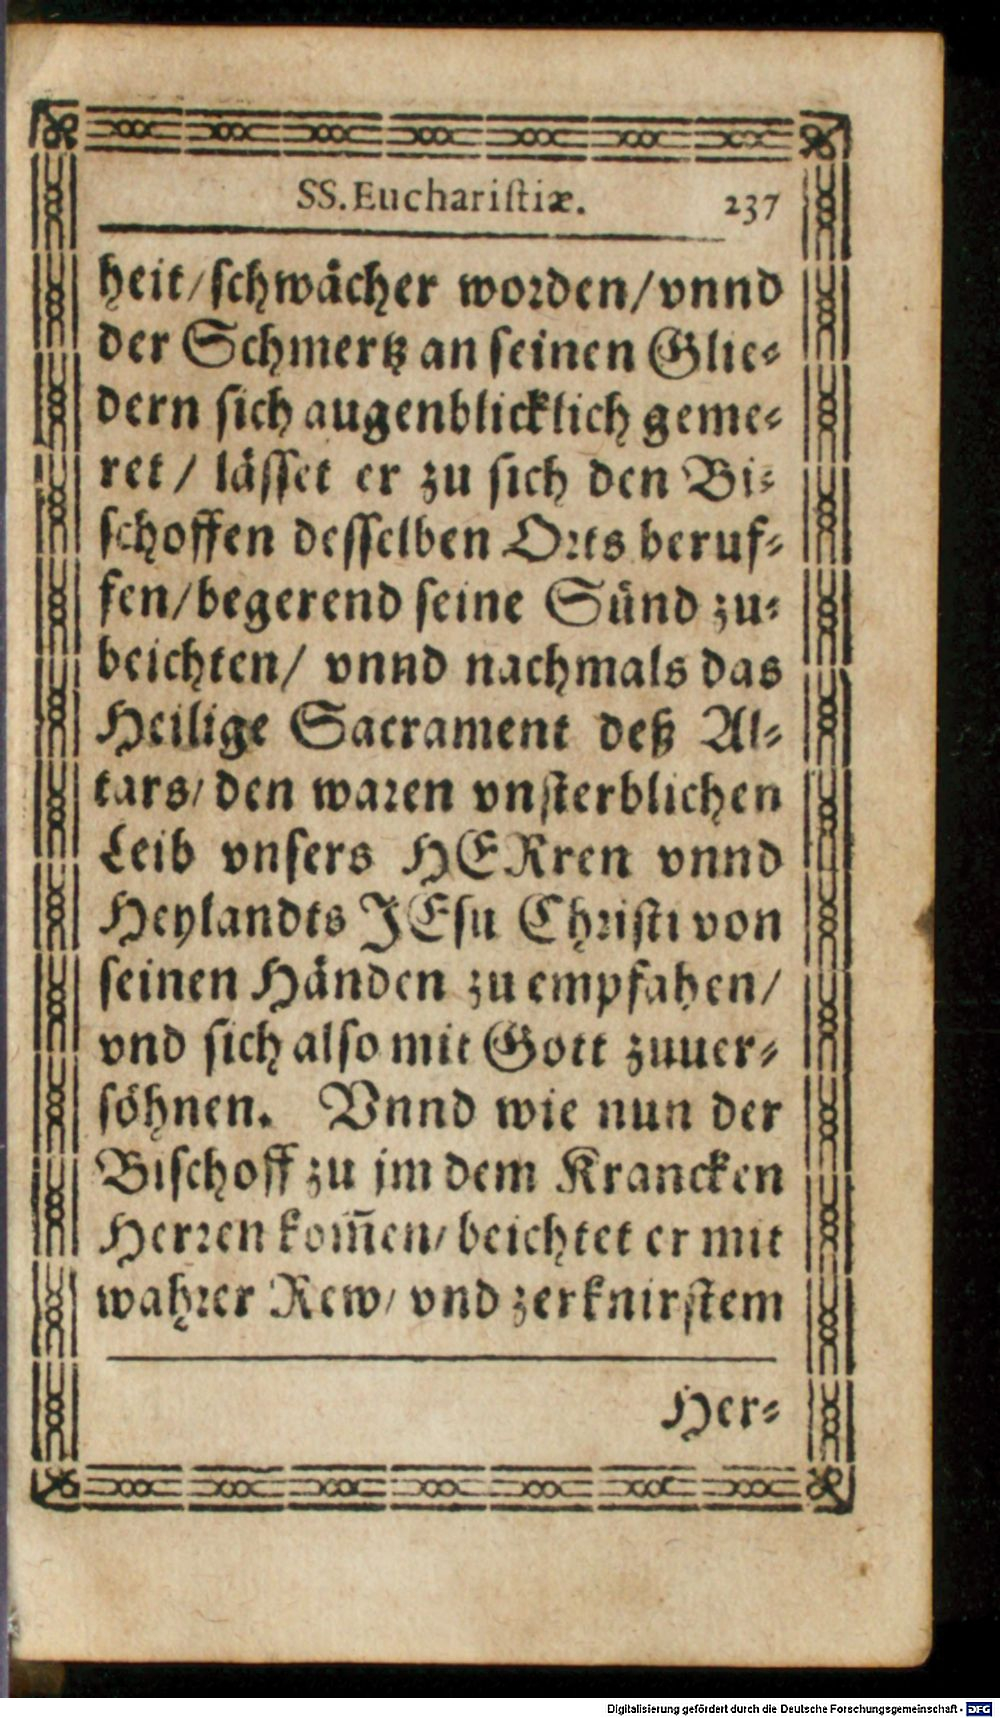 SS. Euchariſtiæ. 237
heit/ ſchwächer worden/ vnnd
der Schmertz an ſeinen Glie⸗
dern ſich augenblicklich geme⸗
ret/ läſſet er zu ſich den Bi⸗
ſchoffen deſſelben Orts beruf⸗
fen/ begerend ſeine Sünd zu⸗
beichten/ vnnd nachmals das
Heilige Sacrament deß Al⸗
tars/ den waren vnſterblichen
Leib vnſers HERren vnnd
Heylandts JEſu Chriſti von
ſeinen Händen zu empfahen/
vnd ſich alſo mit Gott zuuer⸗
ſöhnen. Vnnd wie nun der
Biſchoff zu jm dem Krancken
Herren kom̃en/ beichtet er mit
wahrer Rew/ vnd zerknirſtem
Her⸗
Digitalisierung gefördert durch die Deutsche Forschungsgemeinschaft - DFG